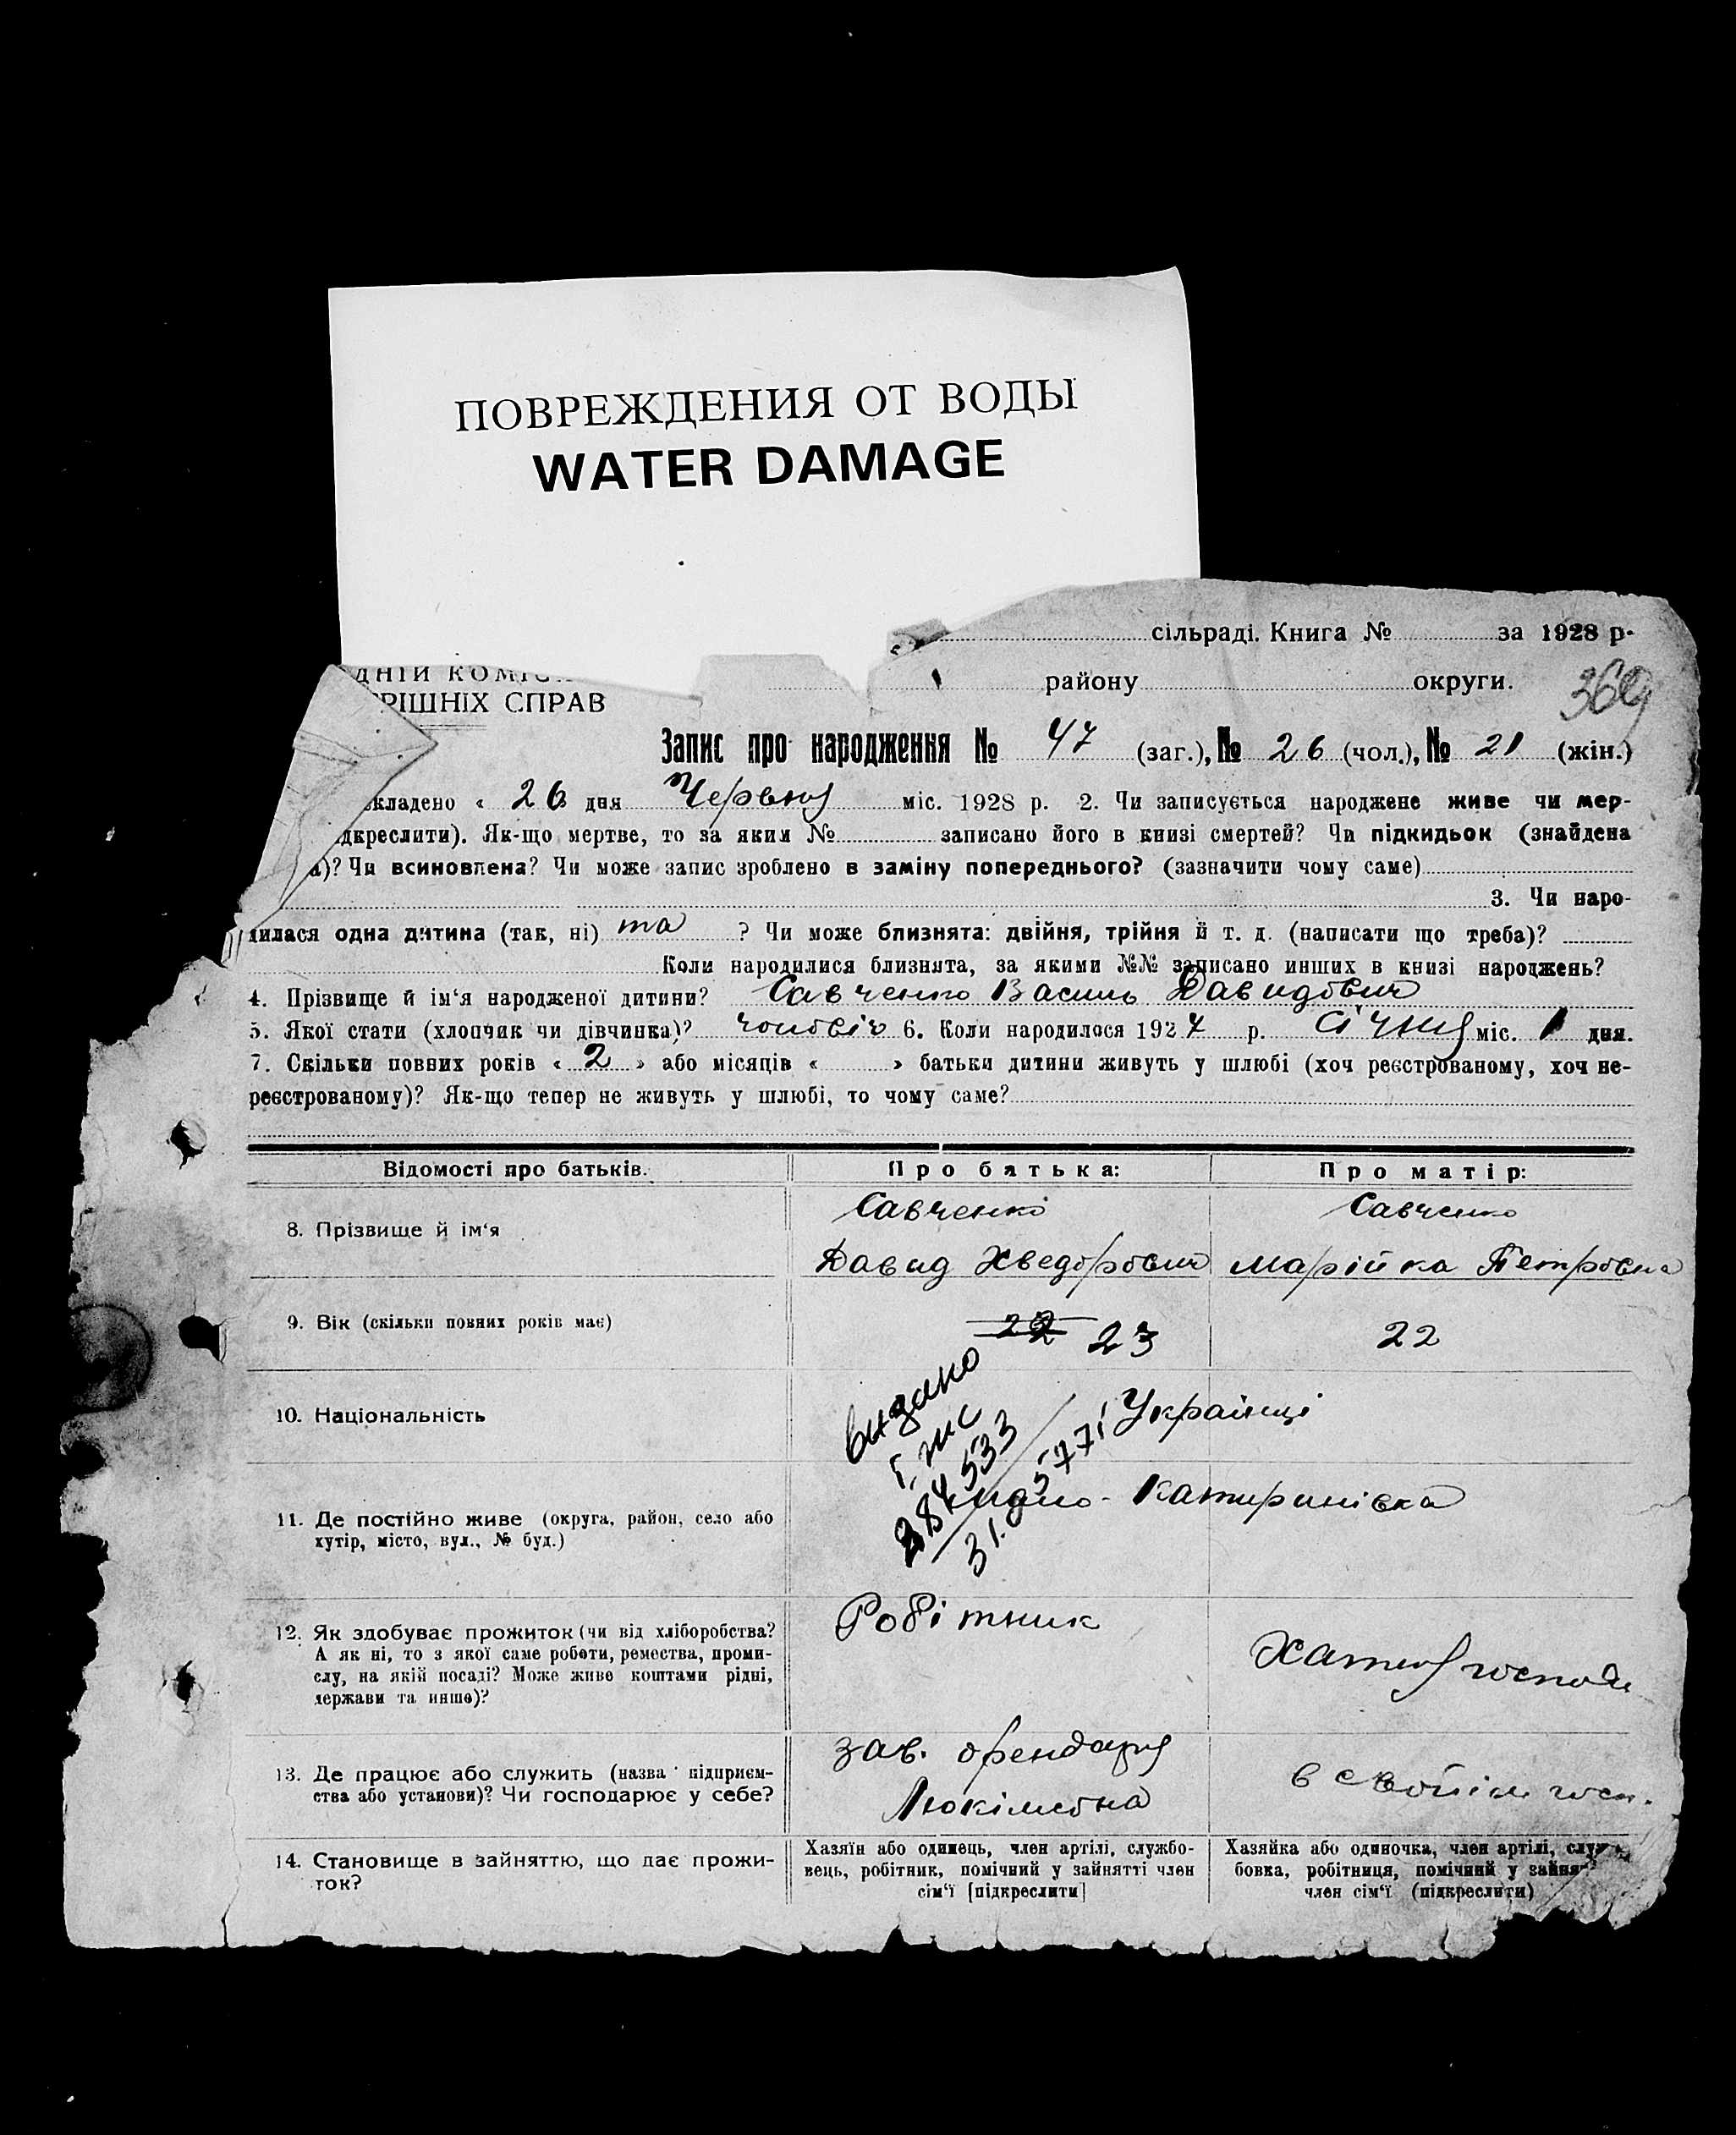 ПОВРЕЖДЕНИЯ ОТ ВОДЫ
WATER DAMAGE
сільраді. Книга № за 1928 р.
РІШНІХ СПРАВ
району округи.
369
Запис про народження № 47 (заг.), № 26 (чол.), № 21 (жін.)
кладено « 26 дня Червня міс. 1928 р. 2. Чи записується народжене живе чи мер-
дкреслити). Як-що мертве, то за яким № записано його в книзі смертей? Чи підкидьок (знайдена
а)? Чи всиновлена? Чи може запис зроблено в заміну попереднього? (зазначити чому саме)
3. Чи наро-
дилася одна дитина (так, ні) та ? Чи може близнята: двійня, трійня й т. д. (написати що треба)?
Коли народилися близнята, за якими №№ записано инших в книзі народжень?
4. Прізвище й ім‘я народженої дитини? Савченко Василь Давидович
5. Якої стати (хлопчик чи дівчинка)? 6. Коли народилося 1927 р. Січня міс. 1 дня.
7. Скільки повних років « 2 » або місяців « » батьки дитини живуть у шлюбі (хоч реєстрованому, хоч не-
реєстрованому)? Як-що тепер не живуть у шлюбі, то чому саме?
Відомості про батьків. Про батька: Про матір:
8. Прізвище й ім‘я
Савченко
Давид Хведорович
Савченко
Марійка Петровна
9. Вік (скільки повних років має) 22 23 22
10. Національність Українці
видано
384533
11. Де постійно живе (округа, район, село або
хутір, місто, вул., № буд.)
Катиринівка
12. Як здобуває прожиток (чи від хліборобства?
А як ні, то з якої саме роботи, ремества, проми-
слу, на якій посаді? Може живе коштами рідні,
держави та инше)?
Робітник
Хатня господ
13. Де працює або служить (назва підприєм-
ства або установи)? Чи господарює у себе?
зав. орендаря
в своїім госп.
14. Становище в зайняттю, що дає прожи-
ток?
Хазяїн або одинець, член артілі, службо-
вець, робітник, помічний у зайнятті член
сім‘ї [підкреслити]
Хазяйка або одиночка, член артілі, служ
бовка, робітниця, помічний у зайня
член сім‘ї (підкреслити)